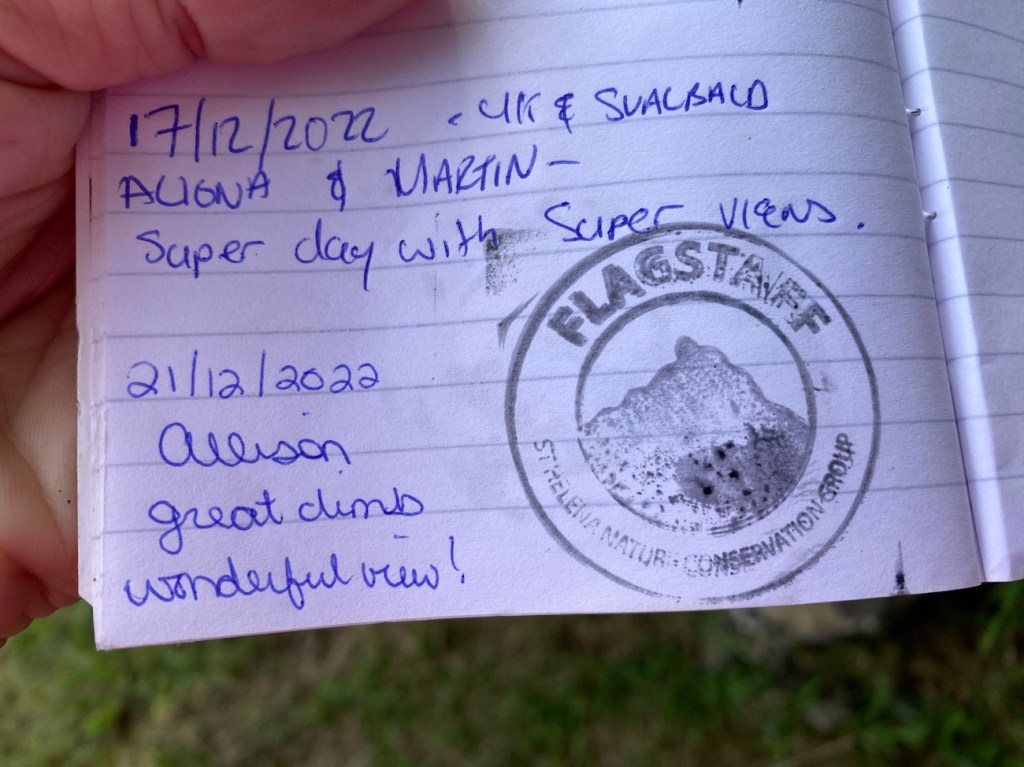 17/12/2022 - UK & SVALBALD
& MARTIN -
Super day with Super views.
FLAGSTAFF
ST HELENA NATURE CONSERVATION GROUP
21/12/2022
Allison
great climb
wonderful view!